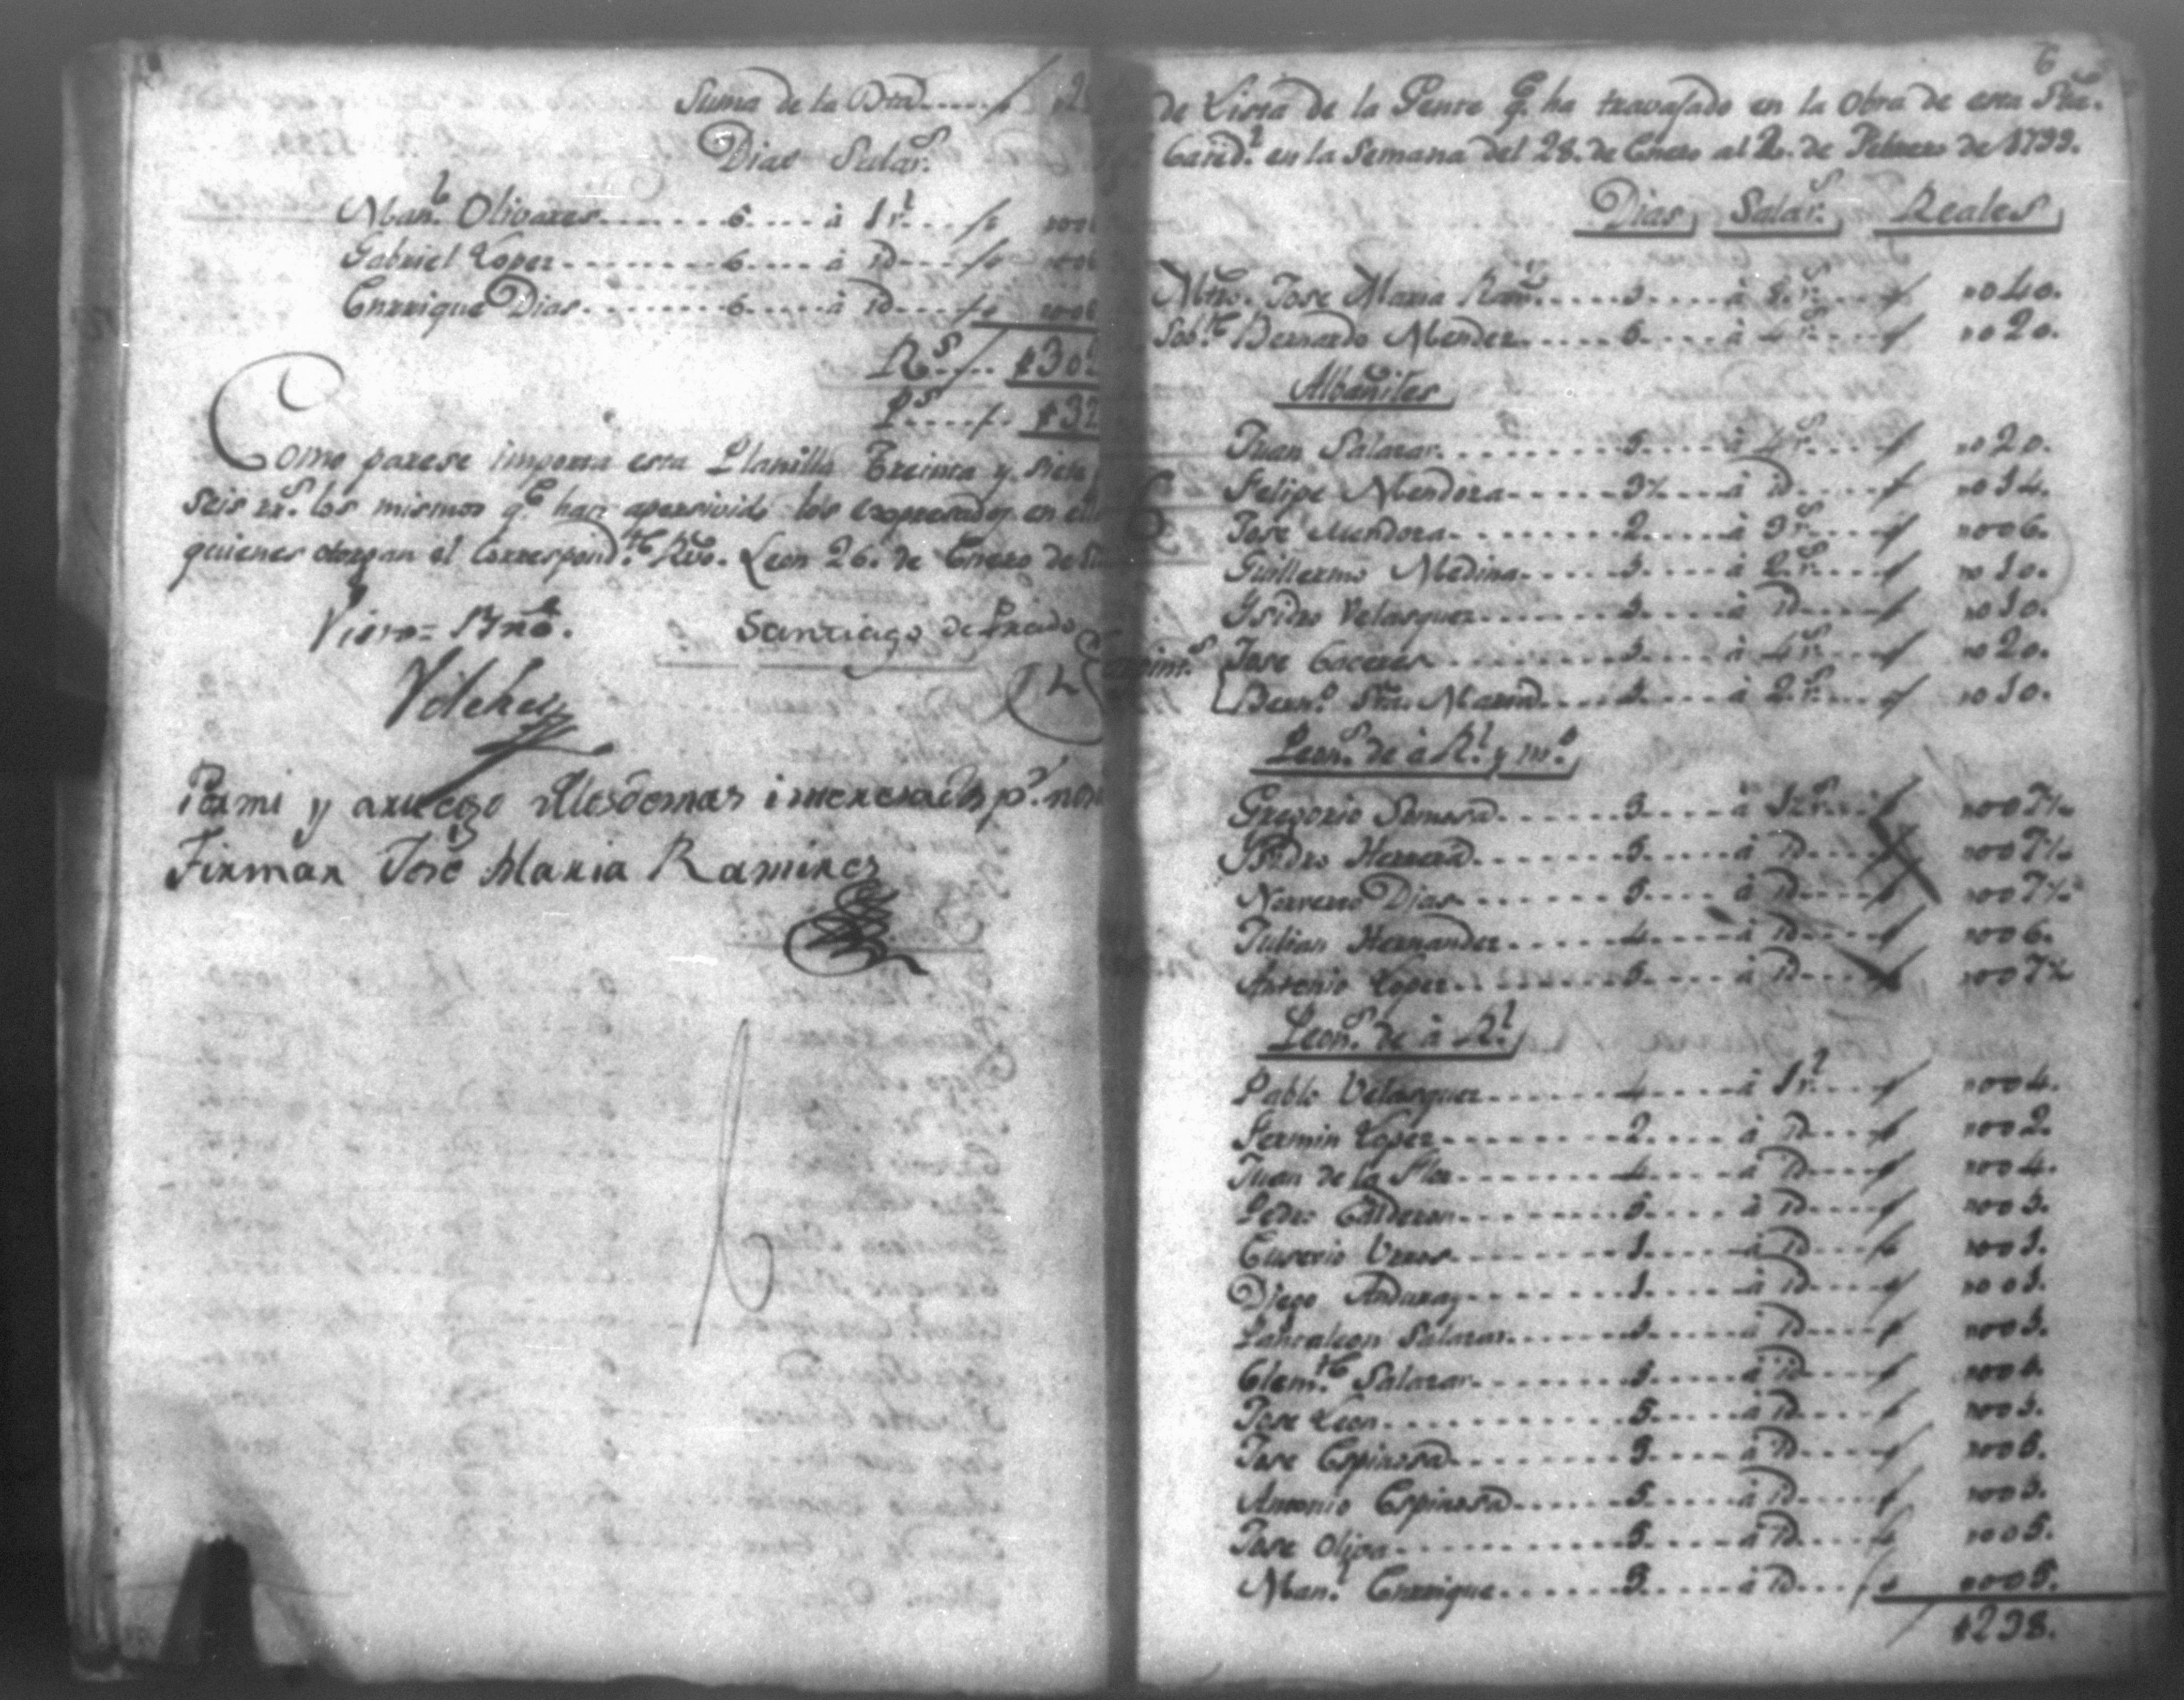 Suma de la Bta..... / 2
Dias Salar.s
Man.l Olivares........ 6.... à 1 r.l... / 006
Gabriel Lopez........ 6.... à id.... / 006
Enrrique Dias........ 6.... à id.... / 006
R.s .... 30
P.s .... / 37
Como parese importa esta Planilla Treinta y siete
seis rr.s los mismos q.e han apersivido los expresados en ella
quienes otorgan el Correspond.te Rvo. Leon 26. de Enero de
Visto = Bno.
Santiago de Prado
Vilchez
Por mi y aruego de los demas interesados p.r no
Firmar José Maria Ramires
6
de Lista de la Gente q.e ha travajado en la Obra de esta Sta.
Cated.l en la Semana del 28. de Enero al 2. de Febrero de 1799.
Dias, Salar.s, Reales,
Mtro. Jose Maria Ram.s..... 5...... à 8 r.s / 040.
Sob.te Bernardo Mendez..... 5...... à 4 r.s / 020.
Albañiles
Juan Salazar........ 5..... à 4 r.s / 020.
Felipe Mendoza..... 3½.... à id.... / 014.
Jose Mendoza....... 2..... à 3 r.s / 006.
Guillermo Medina..... 5..... à 2 r.s / 010.
Ysidro Velasquez..... 5..... à id.... / 010.
Jose Caceres....... 5..... à 4 r.s / 020.
Bern.o Sta. Maria..... 5..... à 2 r.s / 010.
Peon.s de à R.l y m.o
Gregorio Somosa...... 5..... à 1½ r.s / 007½
Ysidro Herrera...... 5..... à id.... / 007½
Norverto Dias....... 5..... à id.... / 007½
Julian Hernandez..... 4..... à id.... / 006.
Antonio Lopez...... 5..... à id.... / 007½
Peon.s de à R.l
Pablo Velasquez...... 4..... à 1 r.l / 004.
Fermin Lopez....... 2..... à id.... / 002.
Juan de la Flor..... 4..... à id.... / 004.
Pedro Calderon...... 5..... à id.... / 005.
Eusevio ..... 1..... à id.... / 001.
Diego Anduray...... 1..... à id.... / 001.
Pantaleon Salazar..... 5..... à id.... / 005.
Clem.te Salazar...... 5..... à id.... / 005.
Jose Leon......... 5..... à id.... / 005.
Jose Espinosa....... 5..... à id.... / 005.
Antonio Espinosa..... 5..... à id.... / 005.
Jose Oliva........ 5..... à id.... / 005.
Man.l Enrrique...... 5..... à id.... / 005.
/ 238.